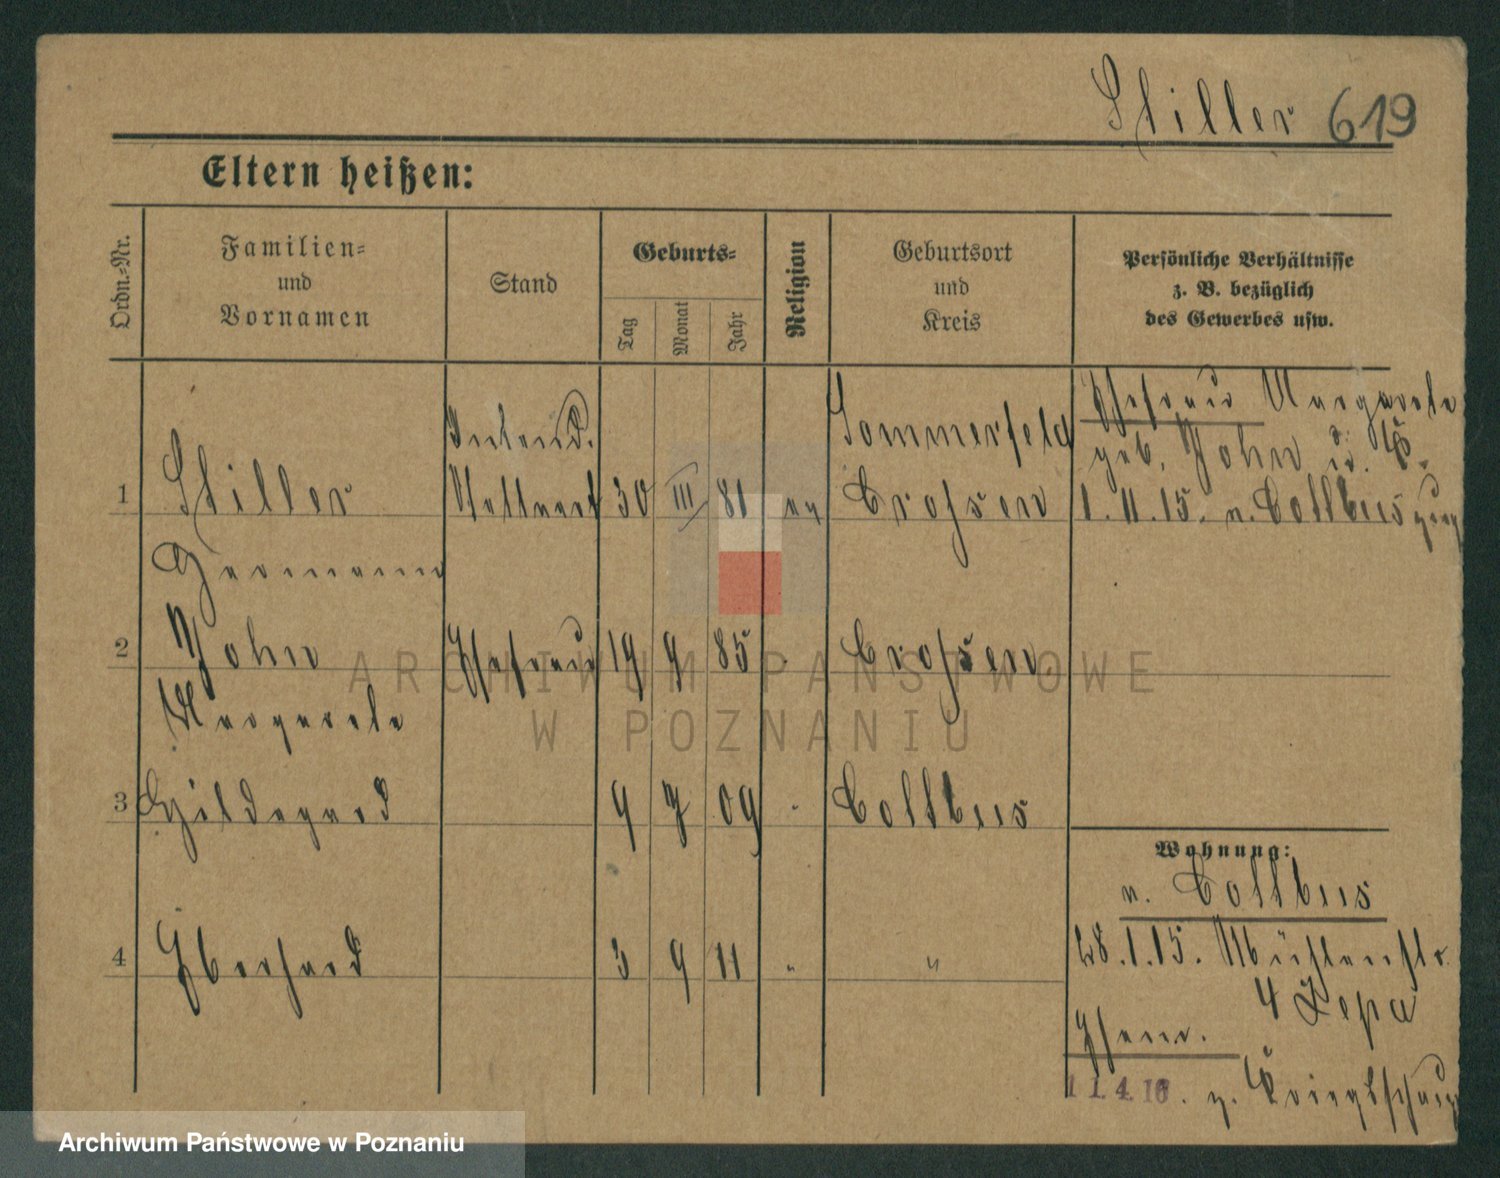 Stiller 619
Eltern heißen:
Ordn.-Nr.
Familien-
und
Vornamen
Stand
Geburts-
Tag
Monat
Jahr
Religion
Geburtsort
und
Kreis
Persönliche Verhältnisse
z. B. bezüglich
des Gewerbes usw.
1
Stiller
Hermann
Intend.
30 III 81 ev
Sommerfeld
Crossen
Ehefrau Margarete
geb. John u. K.
1.11.15. n. Cottbus
2
John
Margarete
Ehefrau
19 9 85
Crossen
3 Hildegard 9 7 09 Cottbus
4 Eberhard 3 9 11 " "
Wohnung:
n. Cottbus
28.1.15. Mühlenstr.
4 Zepa
Ehem.
11.4.16. z.
ARCHIWUM PAŃSTWOWE
W POZNANIU
Archiwum Państwowe w Poznaniu